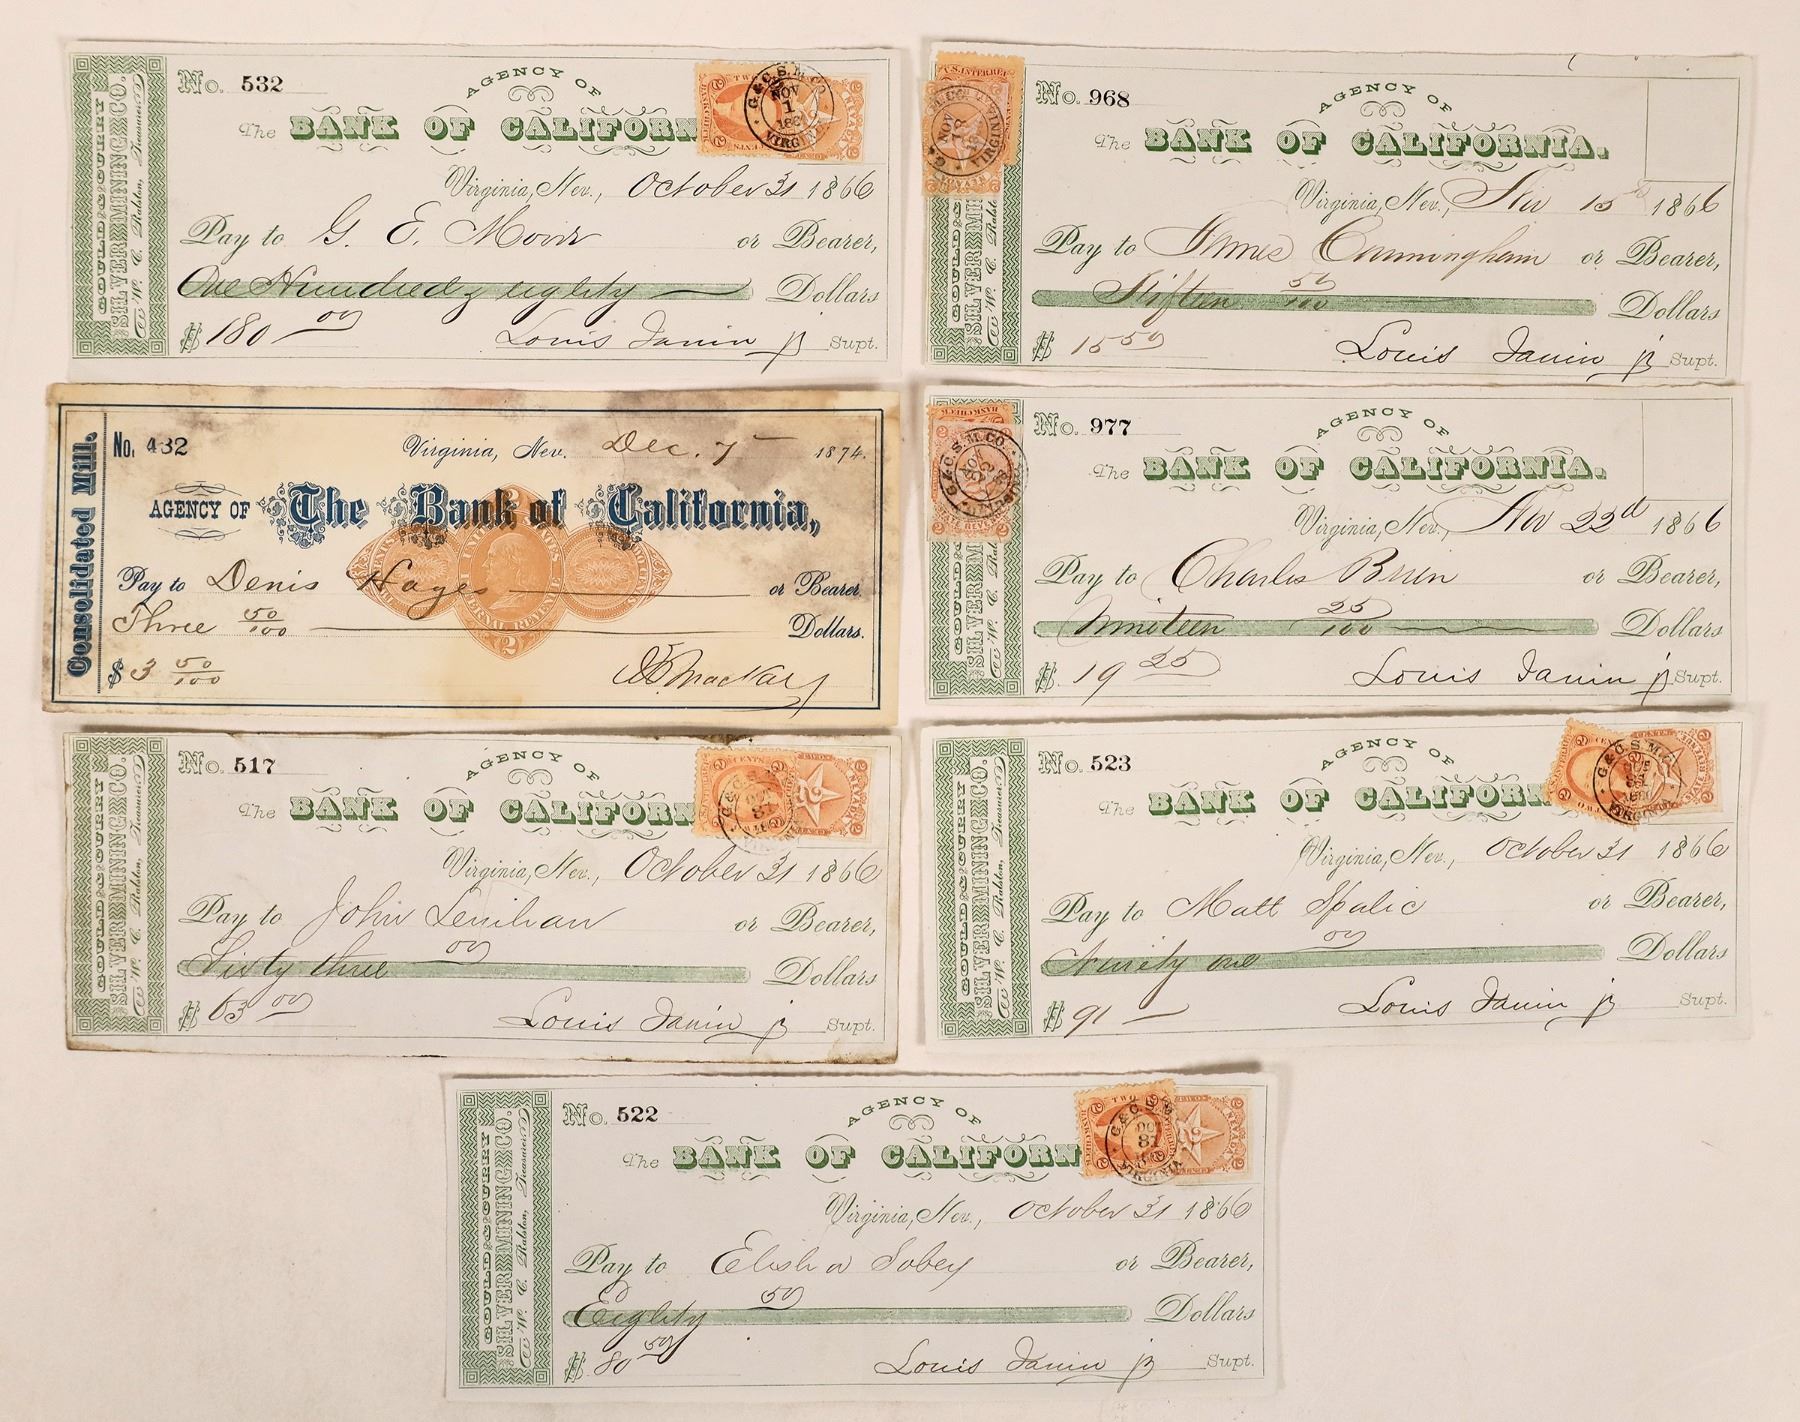 GOULD & CURRY
SILVER MINING CO.
To W. C. Ralston, Treasurer
No. 532
AGENCY OF
The BANK OF CALIFORN
Virginia, Nev., October 31 1866
Pay to G. E. Moir or Bearer,
One Hundred & eighty Dollars
$ 180 00
Louis Janin Jr Supt.
G. & C. S. M. CO.
NOV
1
VIRGINIA
TWO
NEVADA
No. 968
AGENCY OF
The BANK OF CALIFORNIA.
Virginia, Nev., Nov 15th 1866
Pay to James Cunningham or Bearer,
Fifteen 50/100 Dollars
$ 15 50
Louis Janin Jr Supt.
SILVER MINING CO.
U.S. INTER. REV
NOV
Consolidated Mill.
No. 432
Virginia, Nev. Dec. 7 1874.
AGENCY OF The Bank of California,
Pay to Denis Hages or Bearer
Three 50/100 Dollars.
$ 3 50/100
UNITED STATES
INTERNAL REVENUE
2
No. 977
AGENCY OF
The BANK OF CALIFORNIA.
Virginia, Nev., Nov 22d 1866
Pay to Charles Brien or Bearer,
Nineteen 25/100 Dollars
$ 19 25
Louis Janin Jr Supt.
SILVER MINING CO.
BANK CHECK
G. & C. S. M. CO.
NOV
22
GOULD & CURRY
SILVER MINING CO.
To W. C. Ralston, Treasurer
No. 517
AGENCY OF
The BANK OF CALIFORN
Virginia, Nev., October 31 1866
Pay to John Lenihan or Bearer,
Sixty three 00 Dollars
$ 63 00
Louis Janin Jr Supt.
CENTS
NEVADA
GOULD & CURRY
SILVER MINING CO.
To W. C. Ralston, Treasurer
No. 523
AGENCY OF
The BANK OF CALIFORN
Virginia, Nev., October 31 1866
Pay to Matt Spalic or Bearer,
Ninety one 00 Dollars
$ 91
Louis Janin Jr Supt.
G. & C. S. M. CO.
VIRGINIA
GOULD & CURRY
SILVER MINING CO.
To W. C. Ralston, Treasurer
No. 522
AGENCY OF
The BANK OF CALIFORN
Virginia, Nev., October 31 1866
Pay to Elisha Sobey or Bearer,
Eighty 50 Dollars
$ 80 50
Louis Janin Jr Supt.
TWO
G. & C. S.
31
VIRGINIA
NEVADA